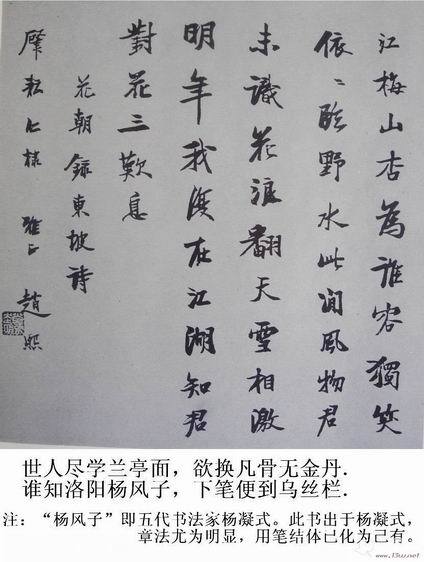 江梅山杏為誰容獨笑
依〻臨野水此間風物君
未識花浪翻天雪相激
明年我復在江湖知君
對花三歎息
花朝錄東坡詩
耘仁棣 雅正 趙熙
世人尽学兰亭而，欲换凡骨无金丹.
谁知洛阳杨风子，下笔便到乌丝栏.
注：“杨风子”即五代书法家杨凝式。此书出于杨凝式，
章法尤为明显，用笔结体已化为己有。